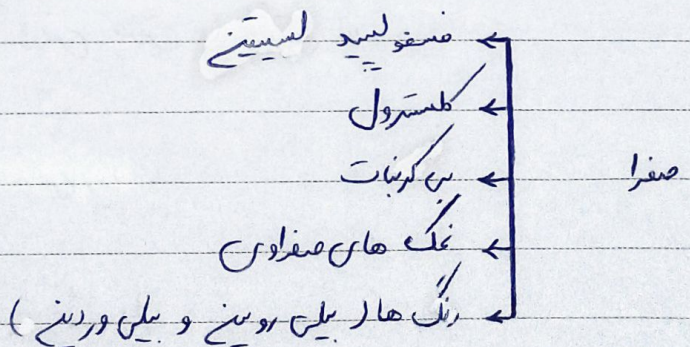 فسفولیپید لسیتین
کلسترول
بی کربنات
صفرا
نمک های صفراوی
رنگ ها ( بیلی روبین و بیلی وردین )